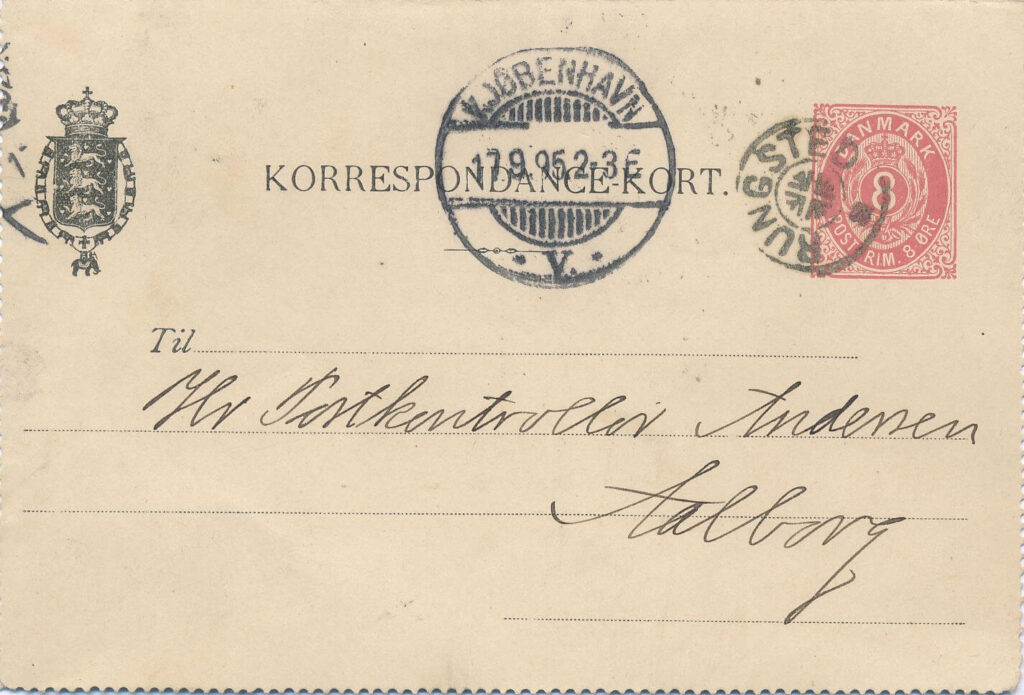 KJØBENHAVN
17.9.95.2-3E
V.
KORRESPONDANCE-KORT.
RUNGSTED
DANMARK
8
POSTFRIM. 8 ØRE
Til
Hr Postkontrollör Andersen
Aalborg